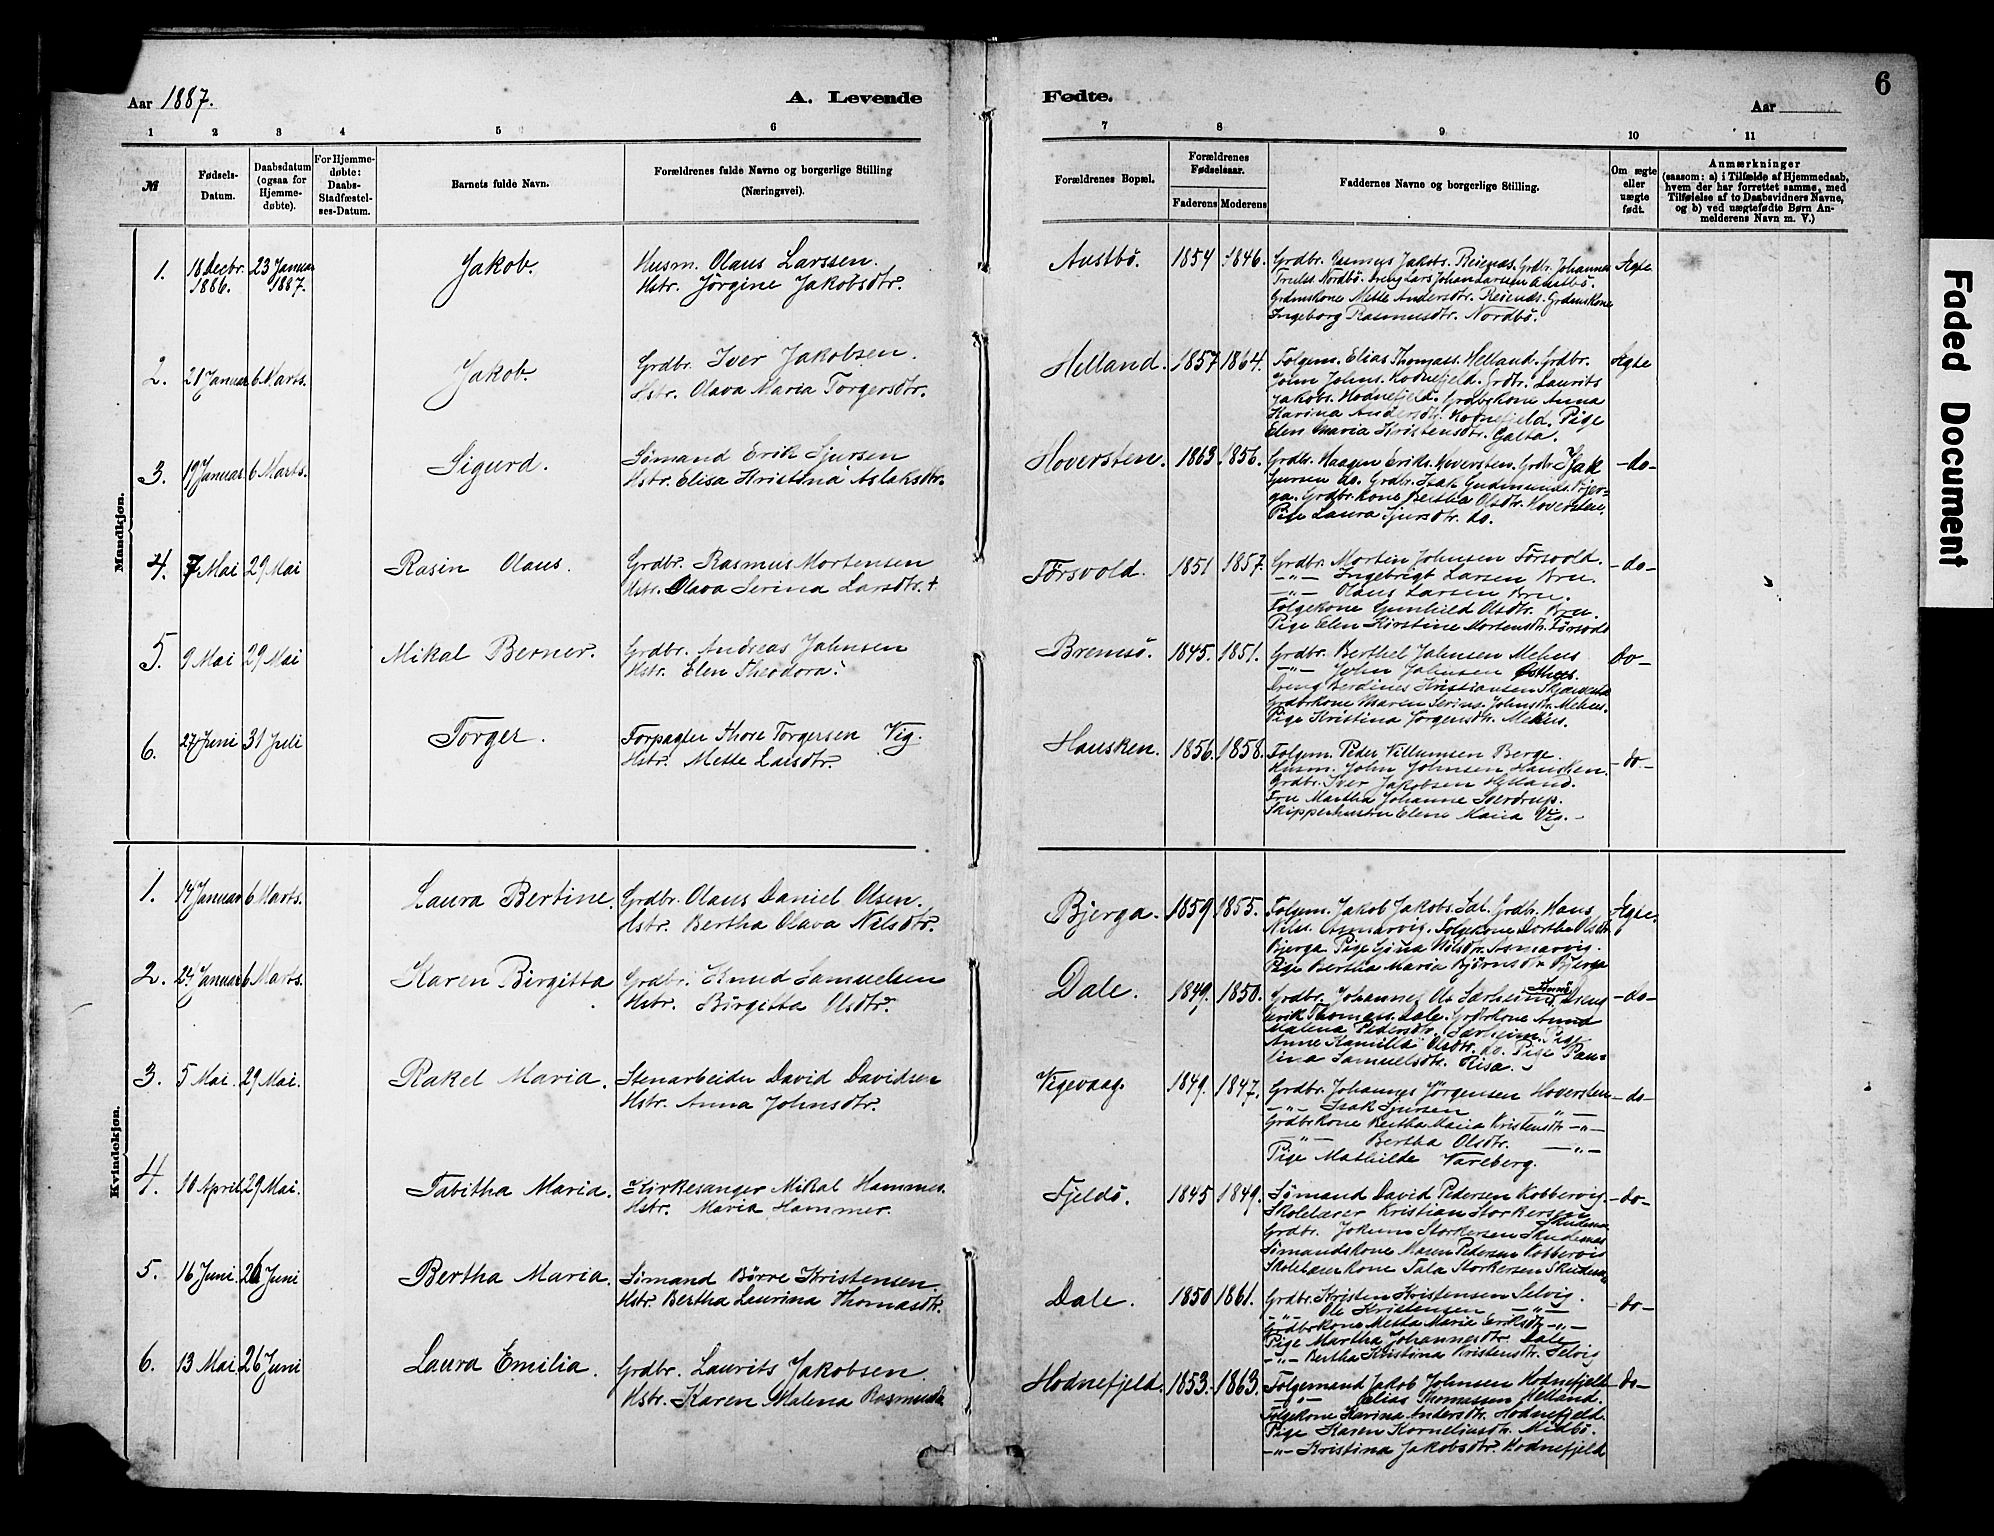 Aar 1887.
A. Levende Fødte.
Aar
6
Faded Document
1 2 3 4 5 6 7 8 9 10 11
№
Fødsels-Datum.
Daabsdatum (ogsaa for Hjemme-døbte).
For Hjemme-døbte: Daabs-Stadfæstel-ses-Datum.
Barnets fulde Navn.
Forældrenes fulde Navne og borgerlige Stilling (Næringsvei).
Forældrenes Bopæl.
Forældrenes Fødselsaar.
Faderens Moderens
Faddernes Navne og borgerlige Stilling.
Om ægte eller uægte født.
Anmærkninger
(saasom: a) i Tilfælde af Hjemmedaab,
hvem der har forrettet samme, med
Tilføielse af to Daabsvidners Navne,
og b) ved uægtefødte Børn An-
melderens Navn m. V.)
Mandkjøn.
1. 18 Decbr. 1886. 23 Januar 1887. Jakob.
Husm. Olaus Larssen.
Hstr. Jörgine Jakobsdtr.
Austbö. 1854 1846.
Grdbr. Rasmus Jakobs. Reienæs. Grdbr. Johannes
Truls. Nordbö. Dreng Lars Johan Larsen Austbö.
Grdmskone Mette Andersdtr. Reienæs. Grdmskone
Ingeborg Rasmusdtr. Nordbö.
Ægte
2. 21 Januar 6 Marts. Jakob.
Grdbr. Iver Jakobsen.
Hstr. Olava Maria Torgersdtr.
Helland. 1857 1864.
Folgem. Elias Thomass. Helland. Grdbr.
John Johns. Hodnefjeld. Grdbr. Laurits
Jakobs. Hodnefjeld. Grdbrkone Anna
Karina Andersdtr. Hodnefjeld. Pige
Elen Maria Kristensdtr. Galta.
Ægte
3. 19 Januar 6 Marts. Sigurd.
Sömand Erik Sjursen
Hstr. Elisa Kristina Aslaksdtr.
Hoversten. 1863 1856.
Grdbr. Haagen Eriks. Hoversten. Grdbr. Isak
Sjursen do. Grdbr. Isak Gudmunds. Bjer-
ga. Grdbr. kone Bertha Olsdtr. Hoversten.
Pige Laura Sjursdtr. do.
-do-
4. 7 Mai 29 Mai Rasin Olaus.
Grdbr. Rasmus Mortensen
Hstr. Olava Serina Larsdtr. +
Försvold. 1851 1857.
Grdbr. Morten Johnsen Försvold.
-"- Ingebrigt Larsen Bru.
-"- Olaus Larsen Bru.
Folgekone Gunhild Olsdtr. Bru.
Pige Elen Kirstine Mortensdtr. Försvold
-do-
5. 9 Mai 29 Mai Mikal Berner.
Grdbr. Andreas Johnsen
Hstr. Elen Theodora.
Bremsö. 1845. 1851.
Grdbr. Berthel Johnsen Mehus
-"- John Johnsen
Dreng Berdines Kristiansen
Grdbrkone Maren Serine Johnsdtr. Mehus.
Pige Kristina Jörgensdtr. Mehus.
Do-
6. 27 Juni 31 Juli Torger.
Forpagter Thore Torgersen Vig.
Hstr. Mette Larsdtr.
Hausken. 1856. 1858.
Folgem. Peder Villumsen Berge.
Husm. John Johnsen Hausken.
Grdbr. Iver Jakobsen Helland.
Fru Martha Johanne Sverdrup.
Skipperhustru Elene Maria Vig.-
-do-
Kvindekjøn.
1. 14 Januar 6 Marts. Laura Bertine.
Grdbr. Olaus Daniel Olsen.
Hstr. Bertha Olava Nilsdtr.
Bjerga. 1859 1855.
Folgem. Jakob Jakobs. Sal. Grdbr. Hans
Nils. Asmarvig. Folgekone Dorthe Olsdtr
Bjerga. Pige Gjina Nilsdtr. Asmarvig.
Pige Bertha Maria Björnsdtr. Bjerga
Ægte.
2. 24 Januar 6 Marts. Karen Birgitta.
Grdbr. Knud Samuelsen
Hstr. Birgitta Olsdtr.
Dale. 1849. 1850.
Grdbr. Johannes Ol. Særheim, Dreng
Erik Thomass. Dale. Grdbrkone Anna
Malena Pedersdtr. Særheim. Pige
Anne Kamilla Olsdtr. do. Pige Pau-
lina Samuelsdtr. Risa.
-do-
3. 5 Mai. 29 Mai. Rakel Maria.
Stenarbeider David Davidsen
Hstr. Anna Johnsdtr.
Vigevaag. 1849. 1847.
Grdbr. Johannes Jörgensen Hoversten
-"- Isak Sjursen -"-
Grdbrkone Bertha Maria Kristensdtr -"-
-"- Bertha Olsdtr. -"-
Pige Mathilde Vareberg.
-do-
4. 10 April. 29 Mai. Tabitha Maria.
Kirkesanger Mikal Hammer.
Hstr. Maria Hammer.
Fjeldö. 1845 1849.
Sömand David Pedersen Kobbervig.
Skolelærer Kristian Storkersen Skudenæs
Grdbr. Jokum Storkersen Skudenæs
Sömandskone Maren Pedersen Kobbervig
Skolelærerkone Tala Storkersen Skudenæs
-do-
5. 16 Juni. 26 Juni Bertha Maria.
Sömand Börre Kristensen.
Hstr. Bertha Laurina Thomasdtr.
Dale. 1850 1861.
Grdbr. Kristen Kristensen Selvig.
-"- Ole Kristensen -"-
Grdbrkone Metta Maria Eriksdtr -"-
Pige Martha Johannesdtr. Dale
-"- Bertha Kristina Kristensdtr. Selvig
-do-
6. 13 Mai. 26 Juni Laura Emilia.
Grdbr. Laurits Jakobsen.
Hstr. Karen Malena Rasmusdtr
Hodnefjeld. 1853. 1863.
Folgemand Jakob Johnsen Hodnefjeld
-"- Elias Thomassen Helland.
Folgekone Karina Andersdtr. Hodnefjeld.
Pige Karen Korneliusdtr. Midbö.
-"- Kristina Jakobsdtr. Hodnefjeld
-do-